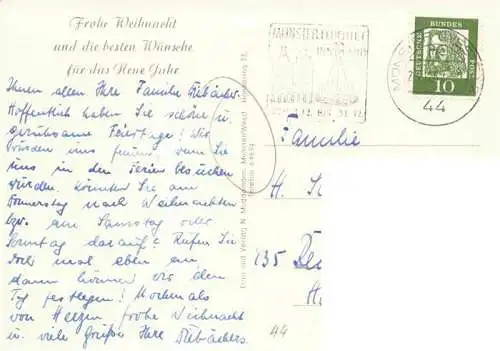 Frohe Weihnacht
und die besten Wünsche
für das Neue Jahr
Ihnen allen Ihre Familie
Hoffentlich haben Sie schöne u.
geruhsame Feiertage! Wir
würden uns freuen, wenn Sie
uns in den Ferien besuchen
würden. Könnten Sie am
Donnerstag nach Weihnachten
bzw. am Samstag oder
Sonntag darauf? Rufen Sie
doch mal eben an
dann können wir den
Tag festlegen! Nochmals
von Herzen frohe Weihnacht
u. viele Grüße Ihre
Druck und Verlag N.
DEUTSCHE
BUNDESPOST
10
44
Familie
H.
135
44